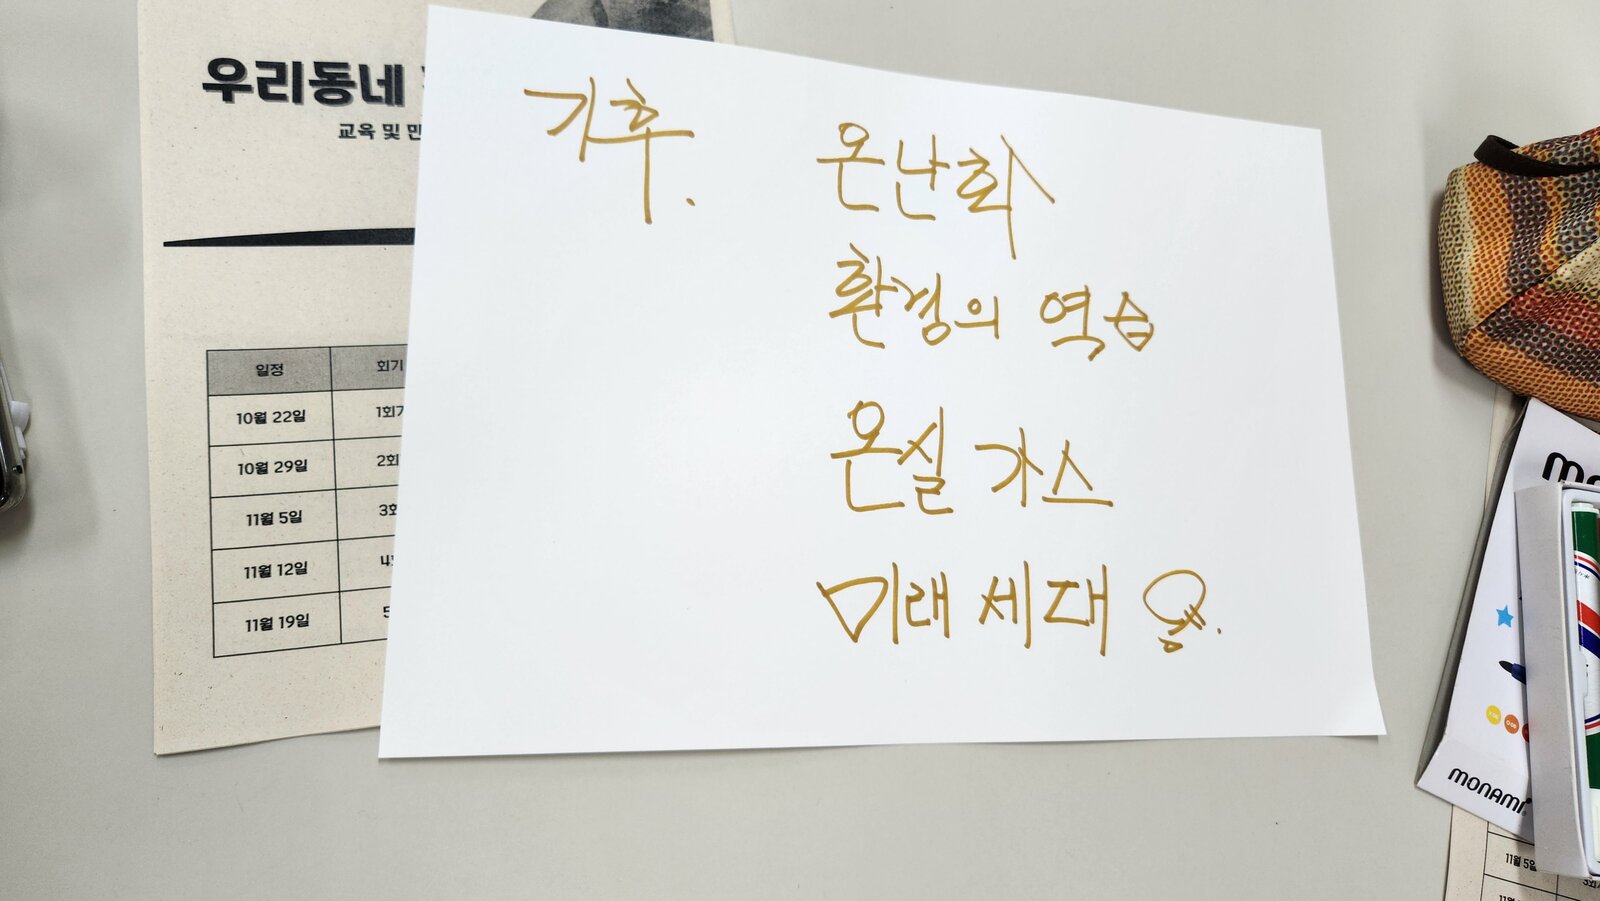 우리동네
교육 및 민
일정 회기
10월 22일 1회기
10월 29일 2회
11월 5일 3회
11월 12일 4회
11월 19일 5
기후.
온난화
환경의 역습
온실 가스
미래 세대
monami
11월 5일 3회